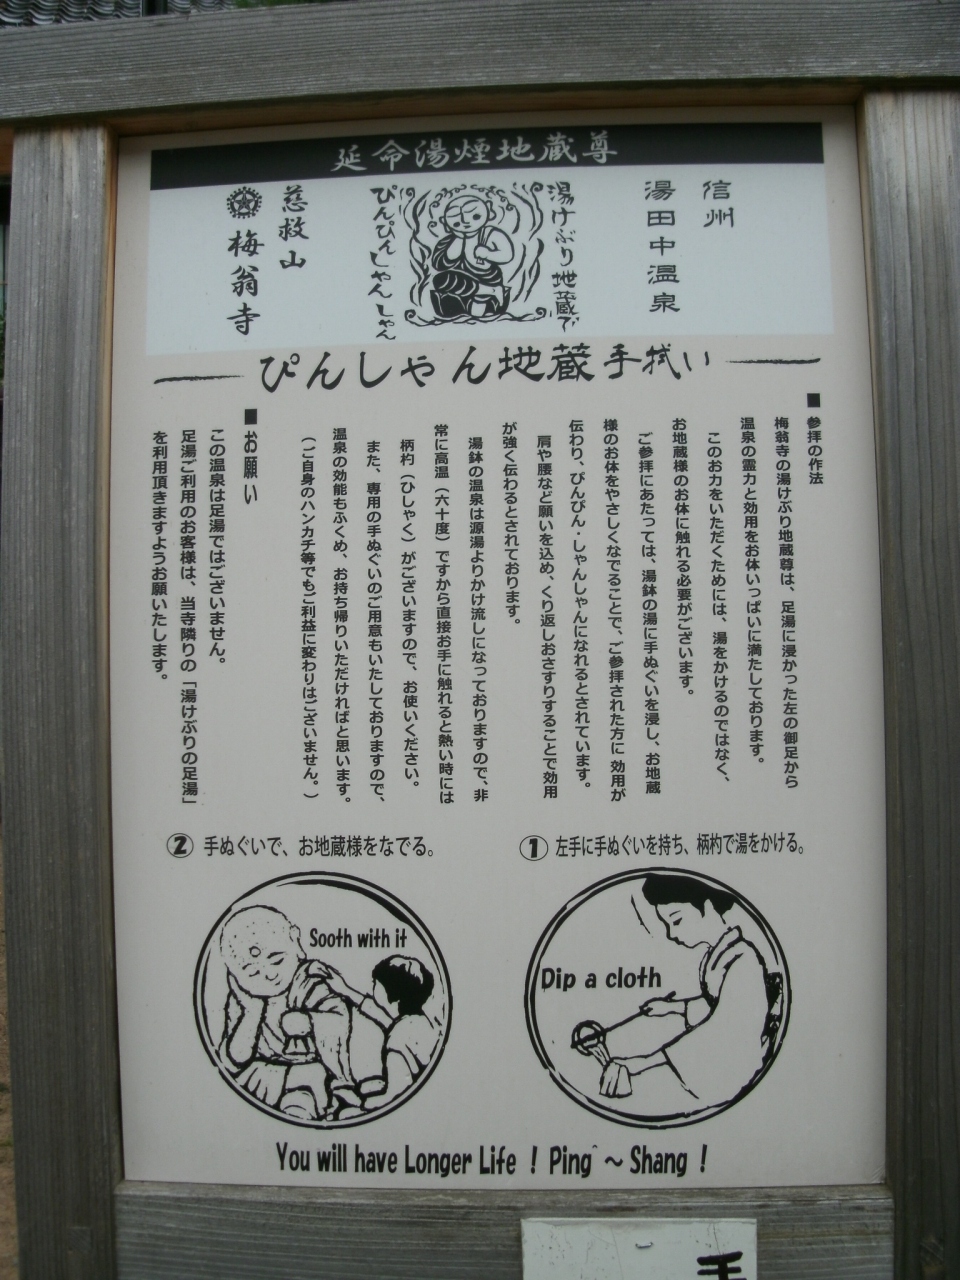 延命湯煙地蔵尊
信州
湯田中温泉
湯けぶり地蔵で
ぴんぴんしゃんしゃん
慈救山
梅翁寺
ぴんしゃん地蔵手拭い
■参拝の作法
梅翁寺の湯けぶり地蔵尊は、足湯に浸かった左の御足から
温泉の霊力と効用をお体いっぱいに満たしております。
このお力をいただくためには、湯をかけるのではなく、
お地蔵様のお体に触れる必要がございます。
ご参拝にあたっては、湯鉢の湯に手ぬぐいを浸し、お地蔵
様のお体をやさしくなでることで、ご参拝された方に効用が
伝わり、ぴんぴん・しゃんしゃんになれるとされています。
肩や腰など願いを込め、くり返しおさすりすることで効用
が強く伝わるとされております。
湯鉢の温泉は源湯よりかけ流しになっておりますので、非
常に高温（六十度）ですから直接お手に触れると熱い時には
柄杓（ひしゃく）がございますので、お使いください。
また、専用の手ぬぐいのご用意もいたしておりますので、
温泉の効能もふくめ、お持ち帰りいただければと思います。
（ご自身のハンカチ等でもご利益に変わりはございません。）
■お願い
この温泉は足湯ではございません。
足湯ご利用のお客様は、当寺隣りの「湯けぶりの足湯」
を利用頂きますようお願いたします。
①左手に手ぬぐいを持ち、柄杓で湯をかける。
Dip a cloth
②手ぬぐいで、お地蔵様をなでる。
Sooth with it
You will have Longer Life ! Ping ~ Shang !
手